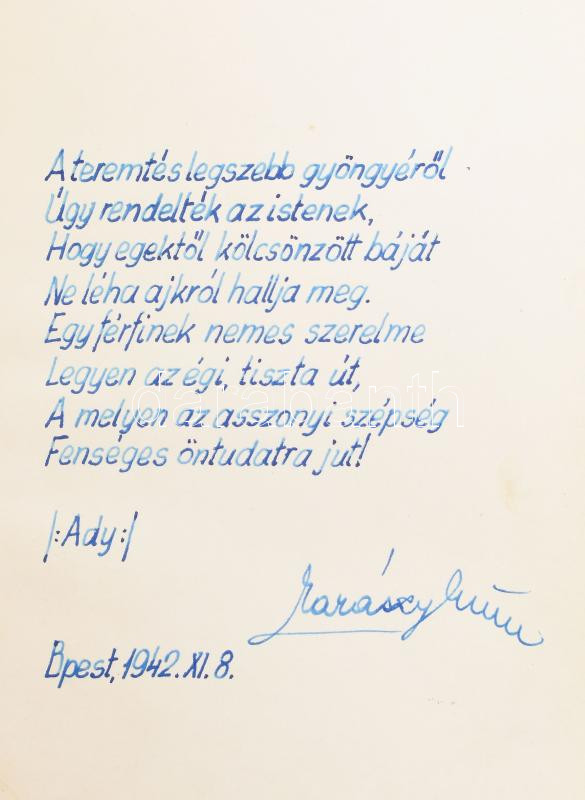 A teremtés legszebb gyöngyéről
Úgy rendelték az istenek,
Hogy egektől kölcsönzött báját
Ne léha ajkról hallja meg.
Egy férfinek nemes szerelme
Legyen az égi, tiszta út,
A melyen az asszonyi szépség
Fenséges öntudatra jut!
/:Ady:/
Bpest, 1942. XI. 8.
darabanth